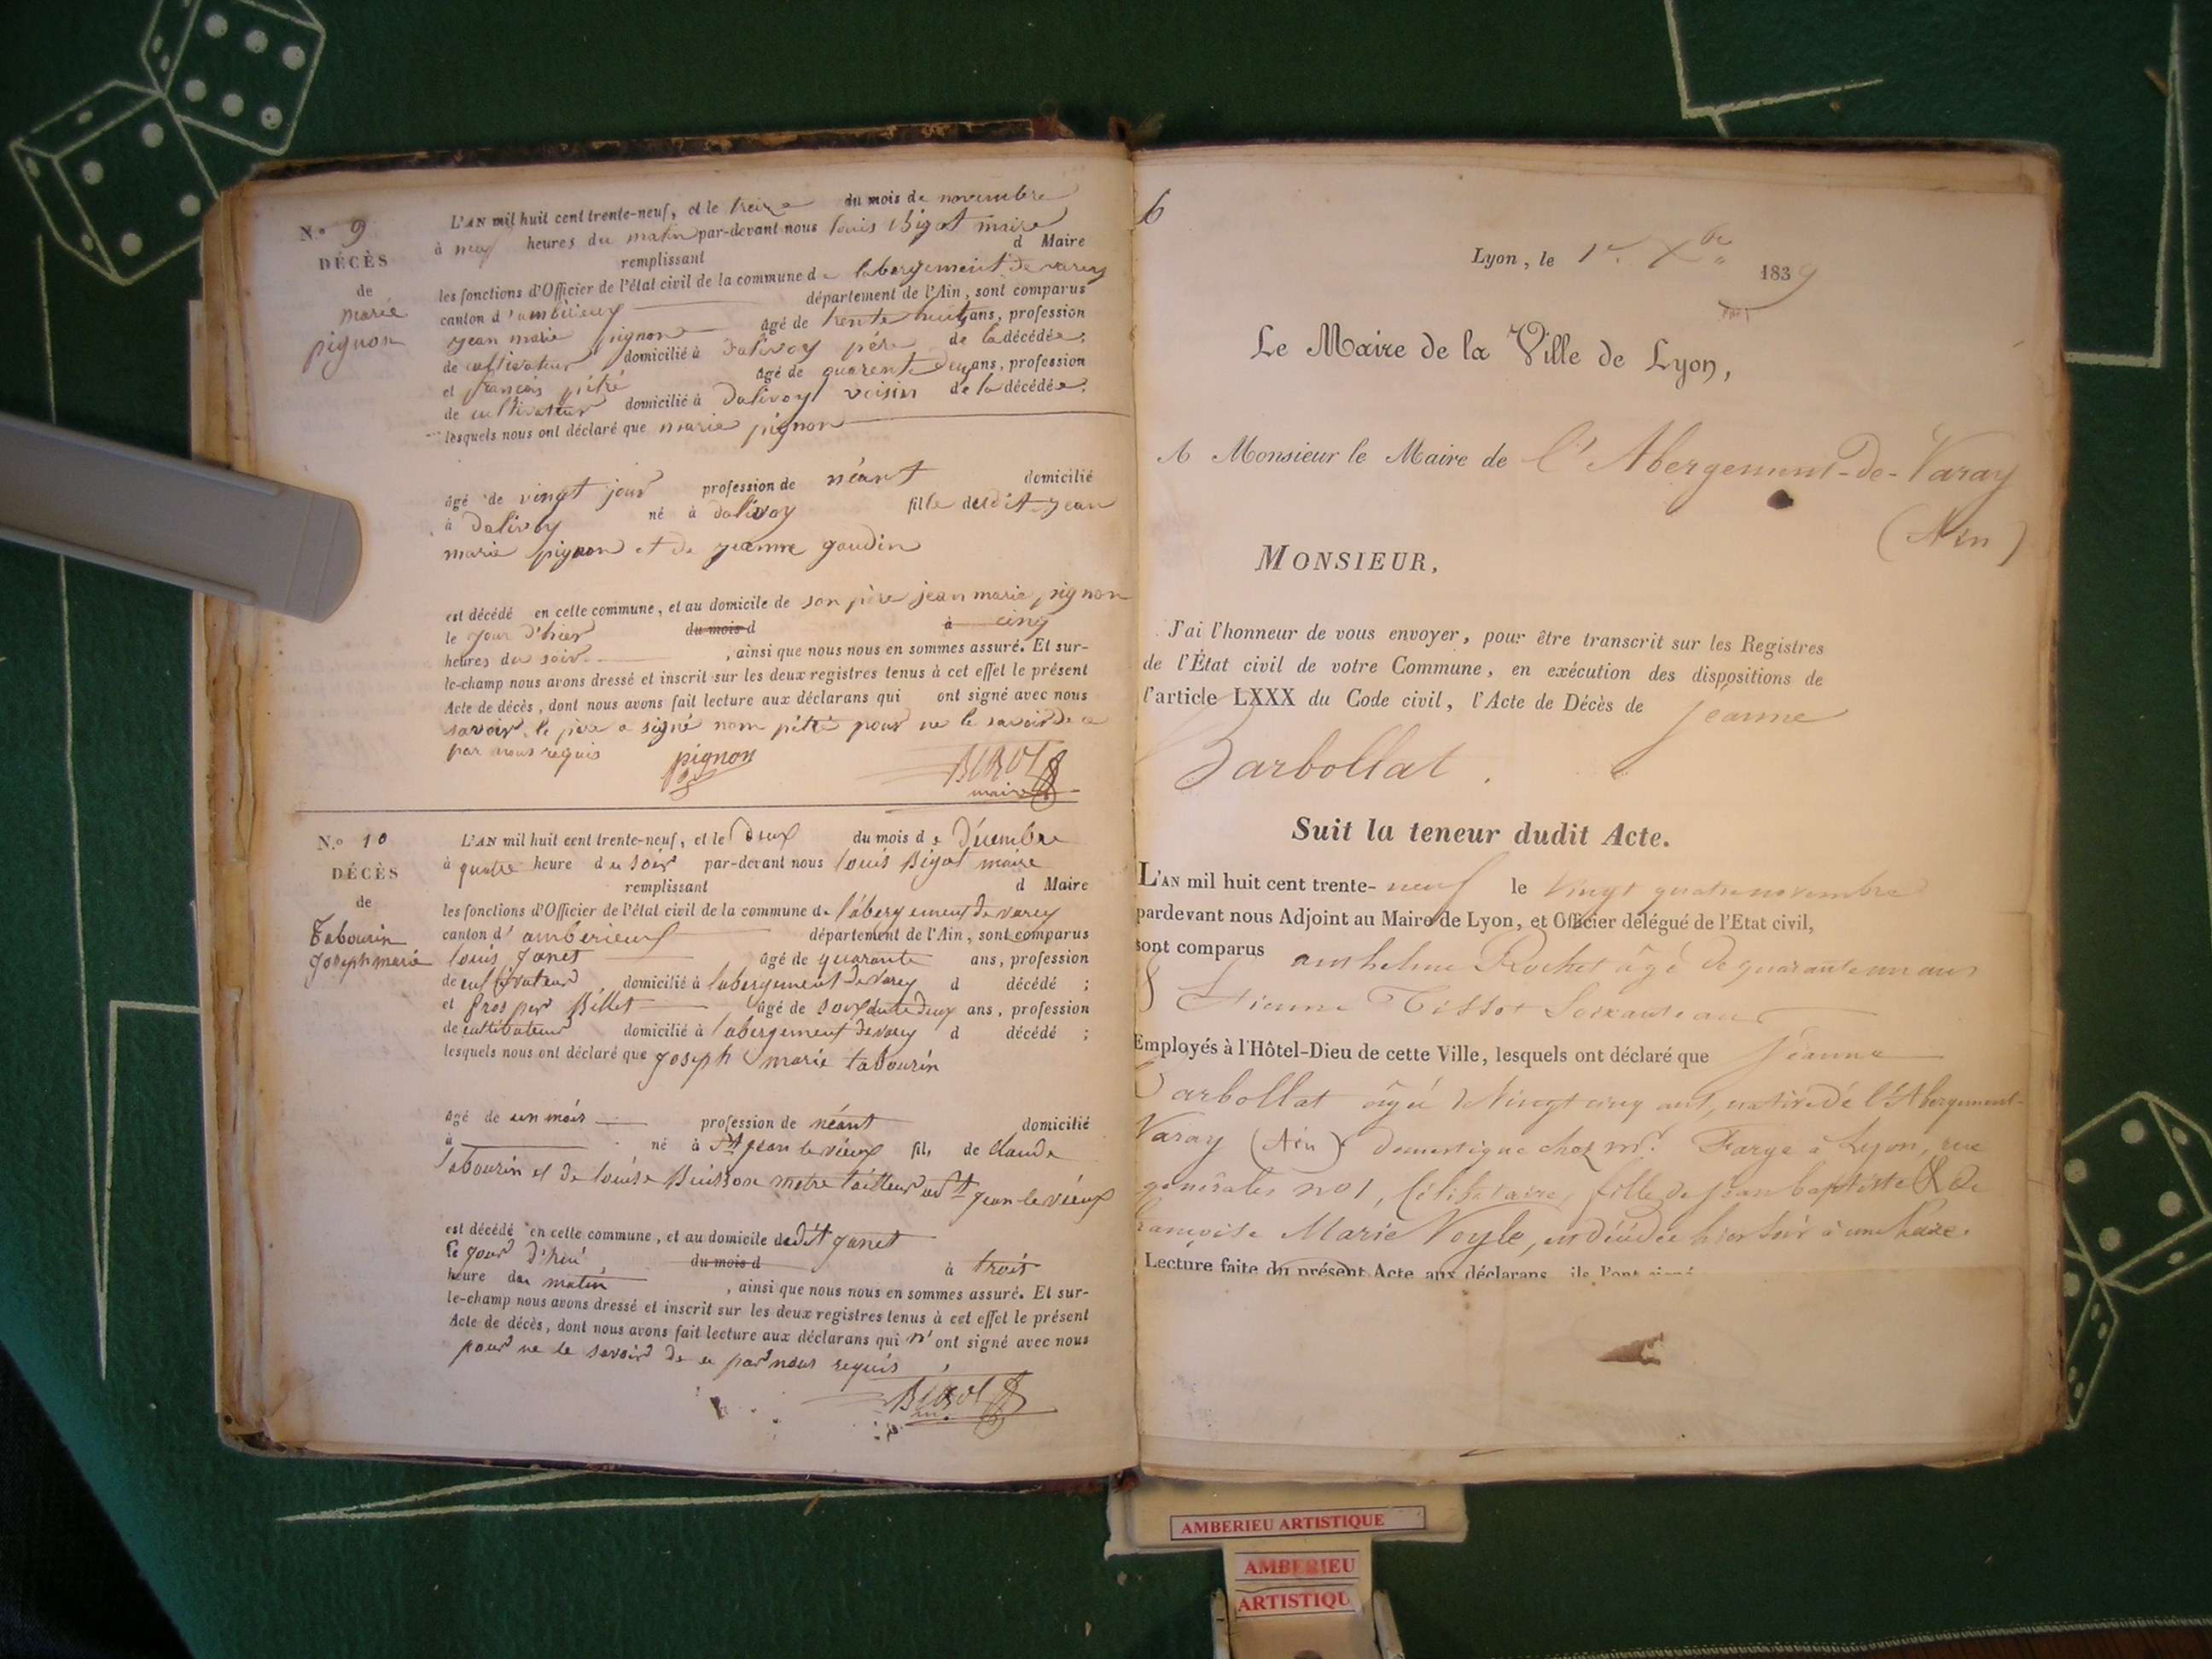 N.o 9
DÉCÈS
de
marie
pignon
L'AN mil huit cent trente-neuf, et le treize du mois de novembre
à neuf heures du matin par-devant nous louis Bigot maire
remplissant d Maire
les fonctions d'Officier de l'état civil de la commune de labergement de varey
canton d'ambérieux département de l'Ain, sont comparus
jean marie pignon âgé de trente huit ans, profession
de cultivateur domicilié à dalivoy père de la décédée;
et françois pétré âgé de quarente deux ans, profession
de cultivateur domicilié à dalivoy voisin de la décédée;
lesquels nous ont déclaré que marie pignon
âgé de vingt jour profession de néant domicilié
à dalivoy né à dalivoy fille dudit jean
marie pignon et de jeanne gaudin
est décédé en cette commune, et au domicile de son père jean marie pignon
le jour d'hier du mois d à cinq
heures du soir , ainsi que nous nous en sommes assuré. Et sur-
le-champ nous avons dressé et inscrit sur les deux registres tenus à cet effet le présent
Acte de décès, dont nous avons fait lecture aux déclarans qui ont signé avec nous
savoir le père a signé nom pétré pour ne le savoir de ce
par nous requis pignon BIGOT
maire
N.o 10
DÉCÈS
de
Tabourin
Joseph marie
L'AN mil huit cent trente-neuf, et le deux du mois de Décembre
à quatre heure du soir par-devant nous louis Bigot maire
remplissant d Maire
les fonctions d'Officier de l'état civil de la commune de l'abergement de varey
canton d'amberieux département de l'Ain, sont comparus
louis janet âgé de quarante ans, profession
de cultivateur domicilié à labergement de varey d décédé ;
et prosper Billet âgé de soixante deux ans, profession
de cultivateur domicilié à labergement de varey d décédé ;
lesquels nous ont déclaré que joseph marie tabourin
âgé de un mois profession de néant domicilié
à né à St jean le vieux fils de claude
tabourin et de louise Buisson metre tailleur au St jean le vieux
est décédé en cette commune, et au domicile dudit janet
le jour d'hui du mois d à trois
heure du matin , ainsi que nous nous en sommes assuré. Et sur-
le-champ nous avons dressé et inscrit sur les deux registres tenus à cet effet le présent
Acte de décès, dont nous avons fait lecture aux déclarans qui n'ont signé avec nous
pour ne le savoir de ce par nous requis
BIGOT
6
Lyon, le 1er Xbre 1839
Le Maire de la Ville de Lyon,
A Monsieur le Maire de l'Abergement-de-Varay
(Ain)
MONSIEUR,
J'ai l'honneur de vous envoyer, pour être transcrit sur les Registres
de l'État civil de votre Commune, en exécution des dispositions de
l'article LXXX du Code civil, l'Acte de Décès de Jeanne
Barbollat.
Suit la teneur dudit Acte.
L'AN mil huit cent trente-neuf le vingt quatre novembre
pardevant nous Adjoint au Maire de Lyon, et Officier délégué de l'Etat civil,
sont comparus anthelme Rochet âgé de quarante un ans
& Etienne Tissot Soixante ans
Employés à l'Hôtel-Dieu de cette Ville, lesquels ont déclaré que Jeanne
Barbollat âgée de Vingt cinq ans, native de l'Abergement-
Varay (Ain) domestique chez mr. Farge à Lyon, rue
générales no 1, Célibataire, fille de jean baptiste & de
françoise Marie Voyle, est décédée hier soir à une heure.
Lecture faite du présent Acte aux déclarans ils l'ont signé
AMBERIEU ARTISTIQUE
AMBERIEU
ARTISTIQU